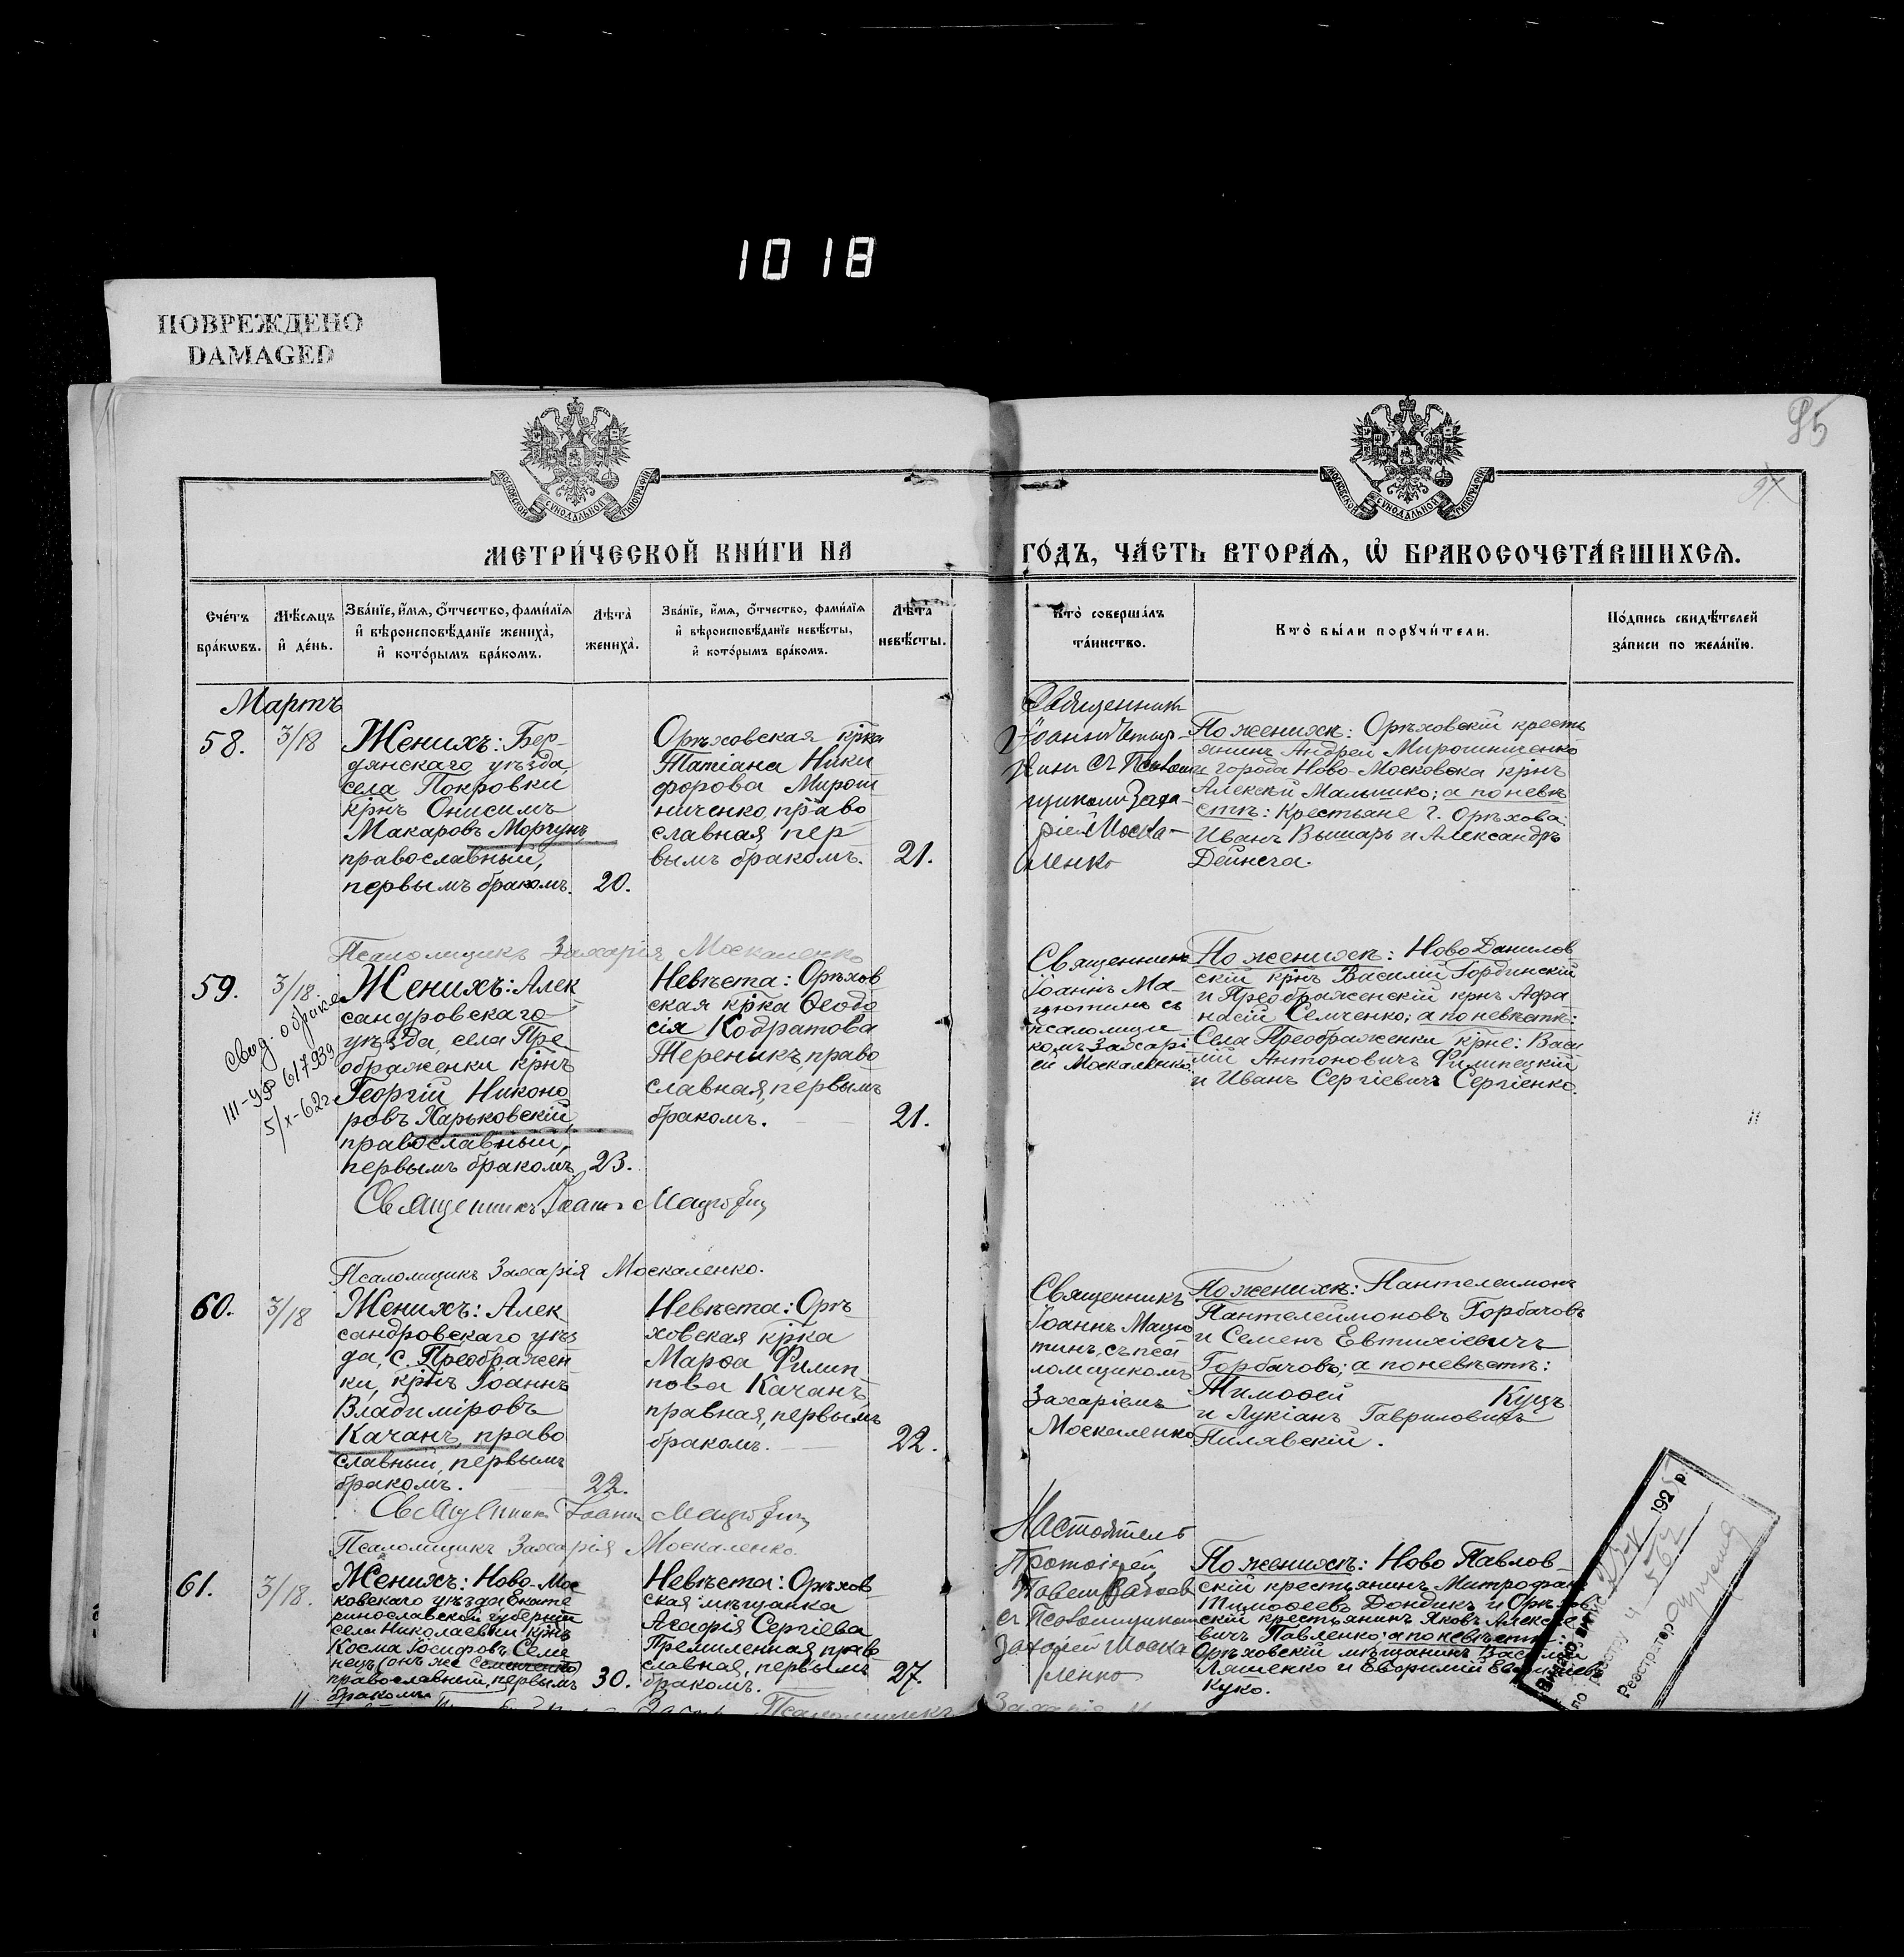 1018
ПОВРЕЖДЕНО
DAMAGED
95
МОСКОВСКОЙ СѴНОДАЛЬНОЙ ТИПОГРАФІИ
МОСКОВСКОЙ СѴНОДАЛЬНОЙ ТИПОГРАФІИ
МЕТРИ́ЧЕСКОЙ КНИ́ГИ НА
ГО́ДЪ, ЧА́СТЬ ВТОРА́Ѧ, Ѽ БРАКОСОЧЕТА́ВШИХСѦ.
Сче́тъ
бра́кѡвъ.
Мѣ́сѧцъ
и҆ де́нь.
Зва́нїе, и҆́мѧ, ѻ҆́тчество, фами́лїѧ
и҆ вѣроисповѣ́данїе жениха̀,
и҆ кото́рымъ бра́комъ.
Лѣ́та
жениха̀.
Зва́нїе, и҆́мѧ, ѻ҆́тчество, фами́лїѧ
и҆ вѣроисповѣ́данїе невѣ́сты,
и҆ кото́рымъ бра́комъ.
Лѣ́та
невѣ́сты.
Кто̀ соверша́лъ
та́инство.
Кто̀ бы́ли порꙋчи́тели.
По́дпись свидѣ́телей
за́писи по жела́нїю.
Мартъ
58.
3/18
Женихъ: Бер-
дянскаго уѣзда
села Покровки
крнъ Онисимъ
Макаровъ Моргунъ
православный,
первымъ бракомъ.
20.
Орѣховская крка
Татіана Ники
форова Мирош
ниченко, право
славная, пер-
вымъ бракомъ.
21.
Священникъ
Іоаннъ
съ Псалом
щикомъ Заха-
ріей Моска-
ленко
По женихѣ: Орѣховскій кресть
янинъ Андрей Мирошниченко
и города Ново-Московска крнъ
Алексѣй Малышко; а по невѣ
стѣ: Крестьяне г. Орѣхова:
Иванъ Вышарь и Александръ
Дейнега.
Псаломщикъ Захарія Москаленко
59.
3/18
Свид. о браке
III-УР 617939
5/X-62г
Женихъ: Алек
сандровскаго
уѣзда, села Пре
ображенки крнъ
Георгій Никоно
ровъ Харьковскій,
православный,
первымъ бракомъ,
23.
Невѣста: Орѣхов
ская крка Ѳеодо
сія Кодратова
Тереникъ, право
славная, первымъ
бракомъ.
21.
Священникъ
Іоаннъ Ма-
цютинъ съ
псаломщи
комъ Захарі
ей Москаленко
По женихѣ: Ново Данилов
скій крнъ Василій Гординскій
и Преображенскій крнъ Афа
насій Семченко; а по невѣстѣ:
Села Преображенки крне: Васи
лій Антоновичъ Филипецкій
и Иванъ Сергіевичъ Сергіенко.
Священникъ Іоаннъ Мацютинъ
Псаломщикъ Захарія Москаленко.
60.
3/18
Женихъ: Алек-
сандровскаго уѣз
да, с. Преображен
ки, крнъ Іоаннъ
Владиміровъ
Качанъ, право
славный, первымъ
бракомъ.
22.
Невѣста: Орѣ
ховская крка
Марѳа Филип
пова Качанъ,
правная, первымъ
бракомъ.
22.
Священникъ
Іоаннъ Мацю
тинъ, съ пса
ломщикомъ
Захаріемъ
Москаленко
По женихѣ: Пантелеимонъ
Пантелеймоновъ Горбачовъ
и Семенъ Евтихіевичъ
Горбачовъ; а по невѣстѣ:
Тимоѳей Куцъ
и Лукіанъ Гавриловичъ
Пилявскій.
Священникъ Іоаннъ Мацютинъ
Псаломщикъ Захарія Москаленко.
61.
3/18.
Женихъ: Ново-Мос
ковскаго уѣзда Екате
ринославской губерніи
села Николаевки крнъ
Косма Іосифовъ Семе
нецъ (онъ же Семенченко)
православный, первымъ
бракомъ
30.
Невѣста: Орѣхов
ская мѣщанка
Агафія Сергіева
Премиленная, право
славная, первымъ
бракомъ.
27.
Настоятель
Протоіерей
Павелъ
съ Псаломщикомъ
Захаріей Моска
ленко
По женихѣ: Ново Павлов-
скій крестьянинъ Митрофанъ
Тимоѳеевъ Дондикъ и Орѣхов
скій крестьянинъ Яковъ Алексѣе
вичъ Павленко; а по невѣстѣ:
Орѣховскій мѣщанинъ Василій
Ляшенко и Евфимій
Куко.
Видано випис
192 р.
по реєстру ч
Реєстратор
Псаломщикъ
Захарія